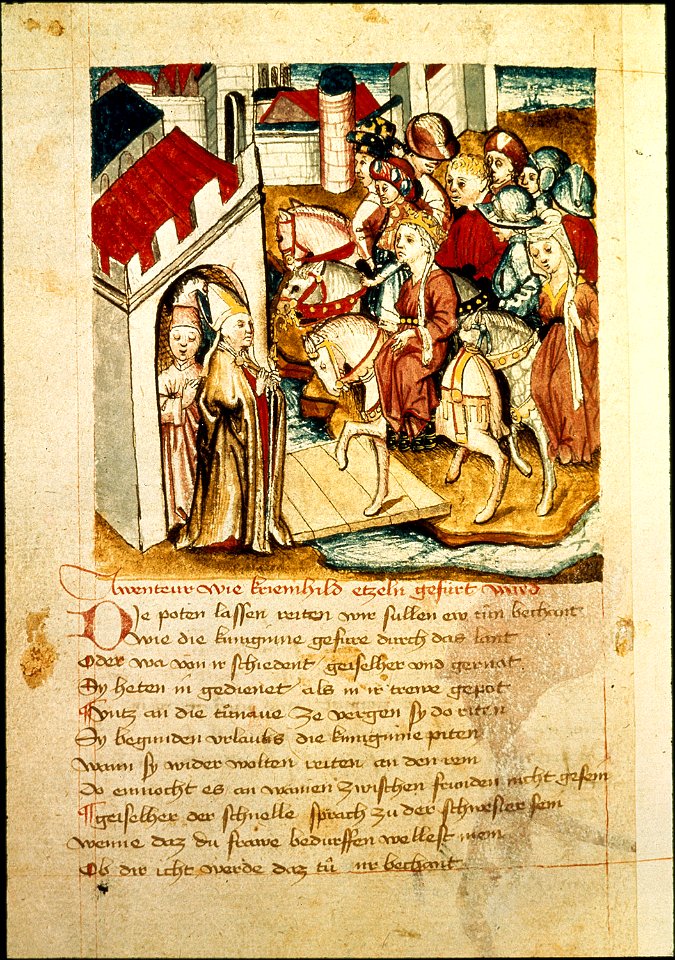 Awenteur wie kriemhild etzeln gefürt ward
Die poten lassen reiten wir sullen ew tün bechant
wie die künigninne gefüre durch das lant
oder wa von ir schiedent geiselher vnd gernat
Sy heten in gedienet als in ir trewe gepot
vntz an die tünaue ze vergen sy do riten
Sy begunden vrlaubs die künigninne piten
wann sy wider wolten reiten an den rein
do enmocht es an wainen zwischen frunden nicht gesein
geiselher der schnelle sprach zu der schwester sein
wenne daz du frawe bedurffen wellest mein
Ob dir icht werde daz tü mir bechant